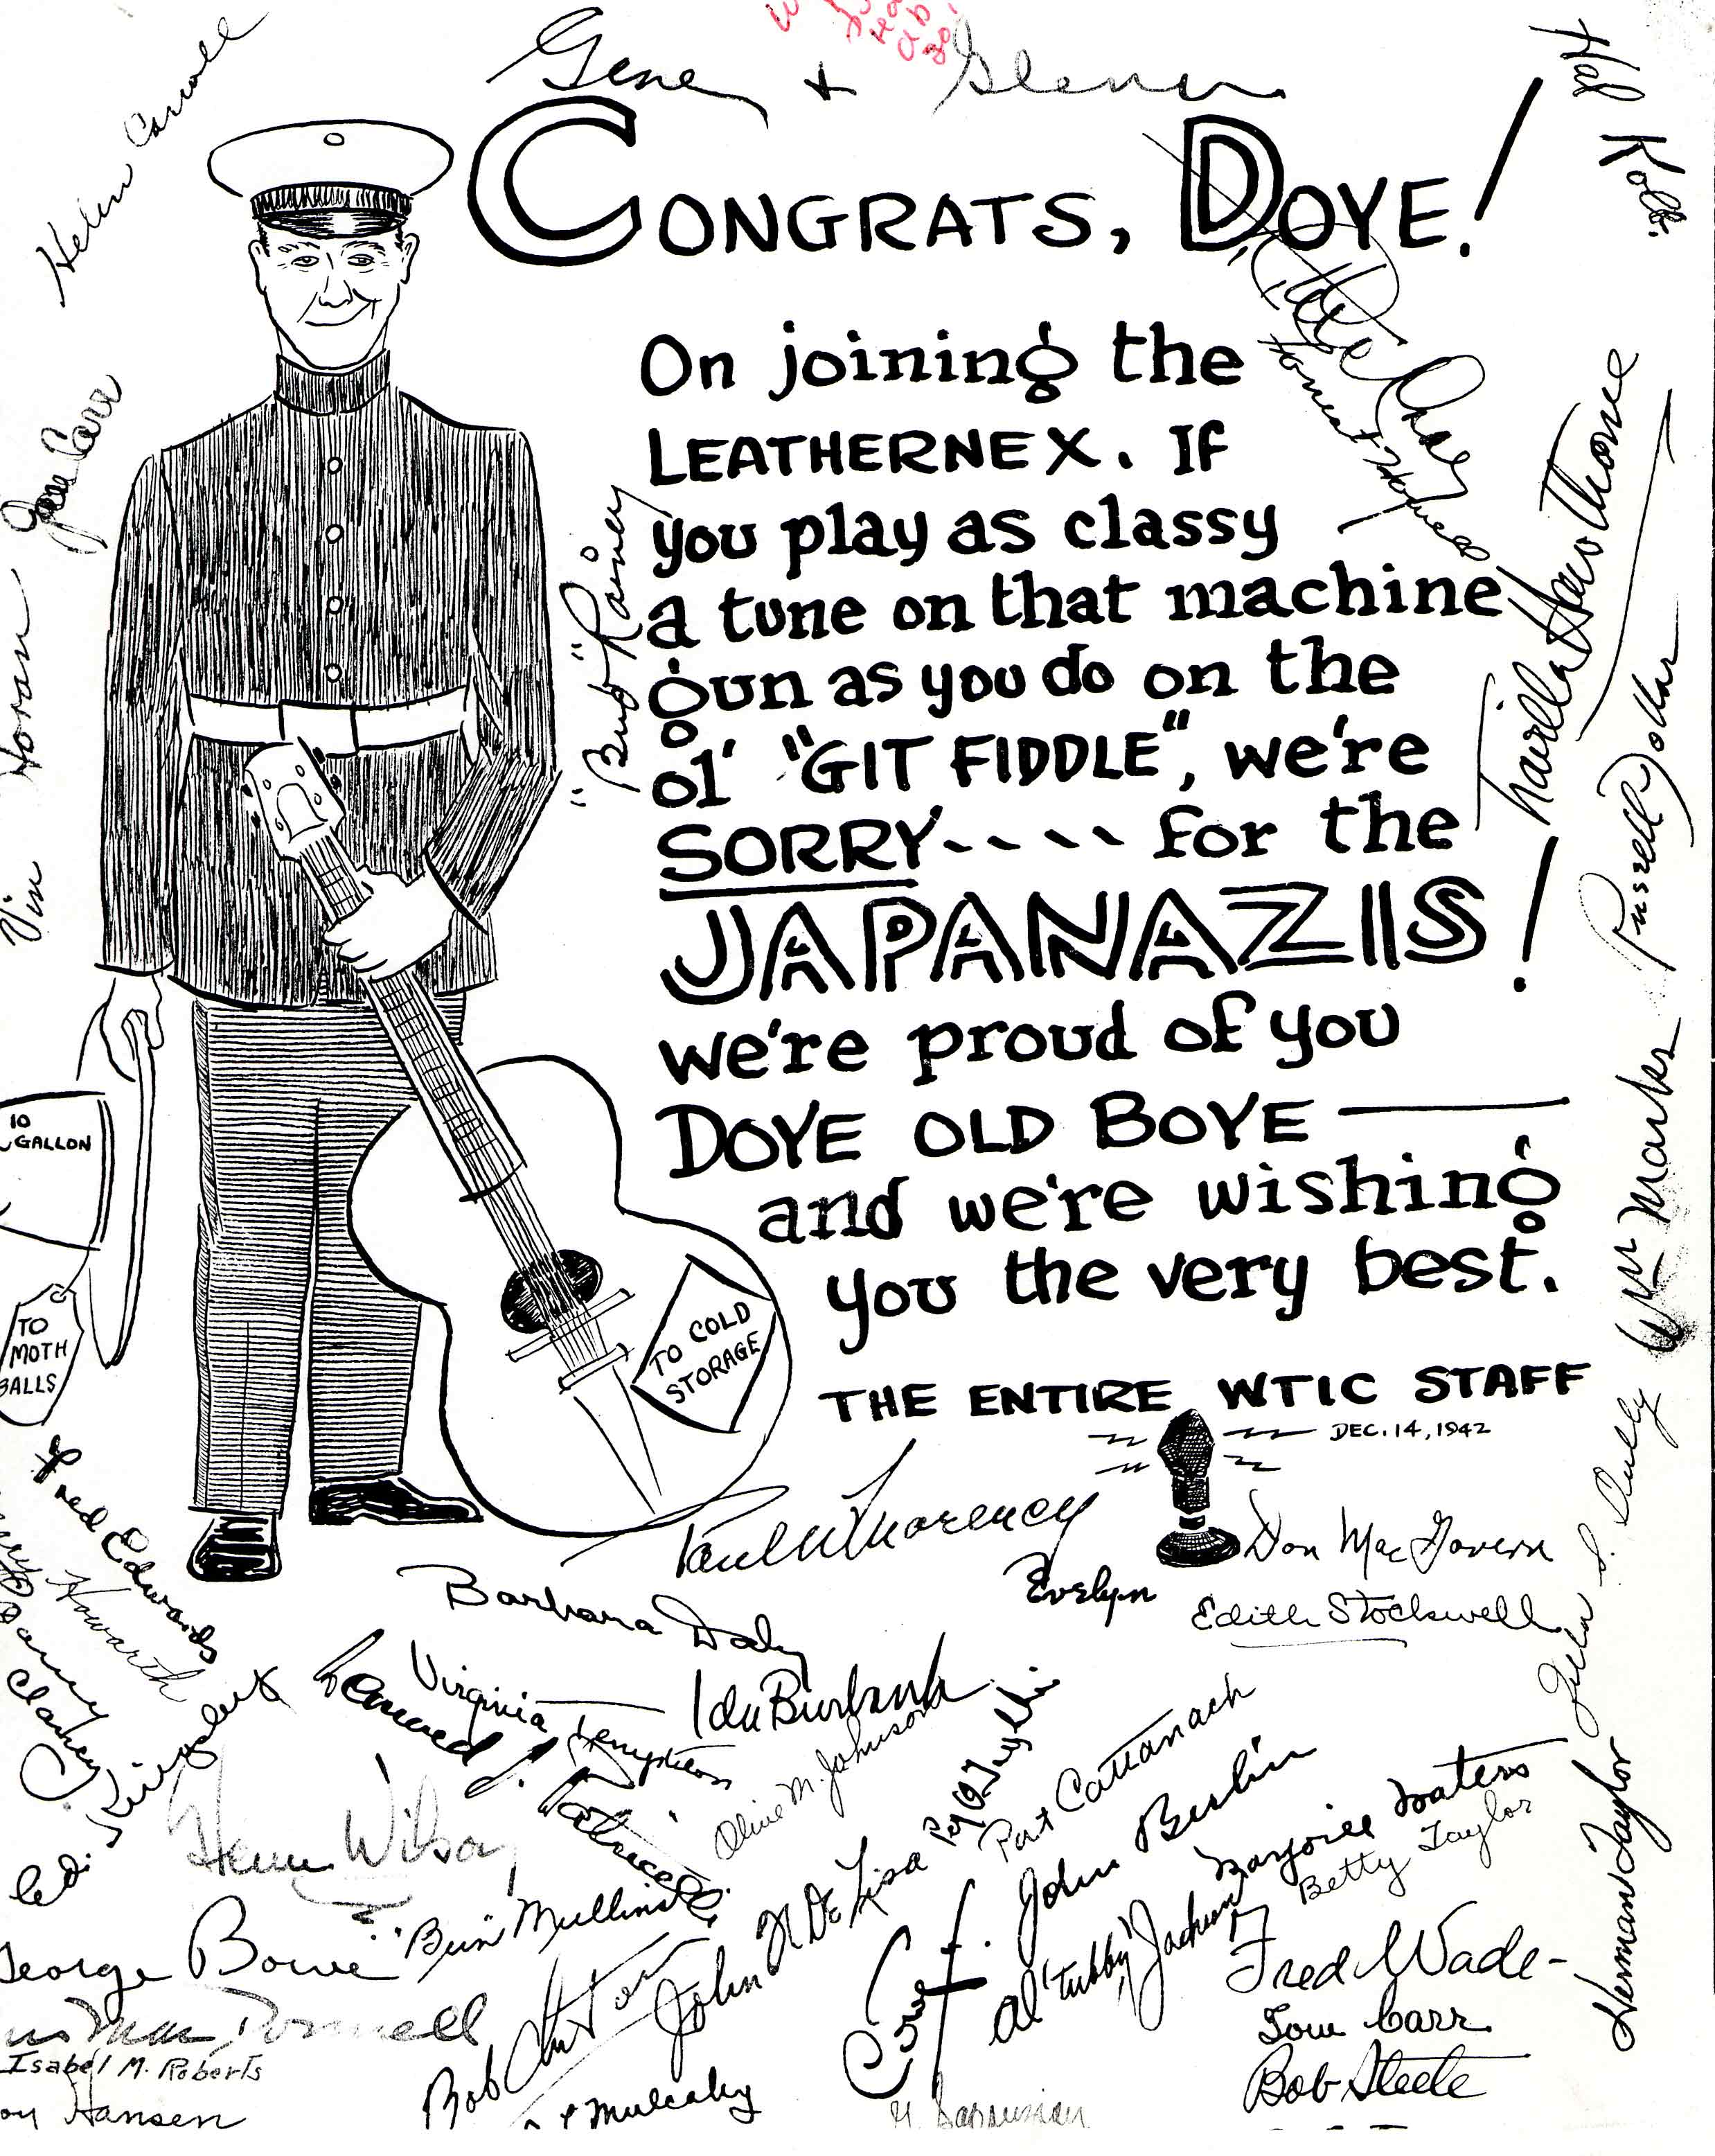 Gene + Glenn
CONGRATS, DOYE!
On joining the
LEATHERNEX. If
you play as classy
a tune on that machine
gun as you do on the
ol' "GIT FIDDLE", we're
SORRY---- for the
JAPANAZIS!
we're proud of you
DOYE OLD BOYE —
and we're wishing
you the very best.
THE ENTIRE WTIC STAFF
DEC. 14, 1942
10
GALLON
TO
MOTH
BALLS
TO COLD
STORAGE
Helen Carroll
Jane Carr
Vin Horan
"Bud" Rainey
Hal Kolb
Honest Howes
Hawthorne
Russell
Wm Marks
Herman Taylor
Fred Edwards
Howarth
Clancy
Ed.
Paul W Morency
Evelyn
Don MacGovern
Edith Stockwell
Barbara Daly
Virginia
Leonard J. Patricelli
Ida Burbank
Olive M. Johnson
Pat Cattanach
John Berlin
Marjorie Waters
Betty Taylor
Al "Tubby" Jackson
Wilson
George Bowe
"Bun" Mullins
John N De Lisa
Fred Wade
Tom Carr
Bob Steele
Isabel M. Roberts
Hansen
Bob
Mulcahy